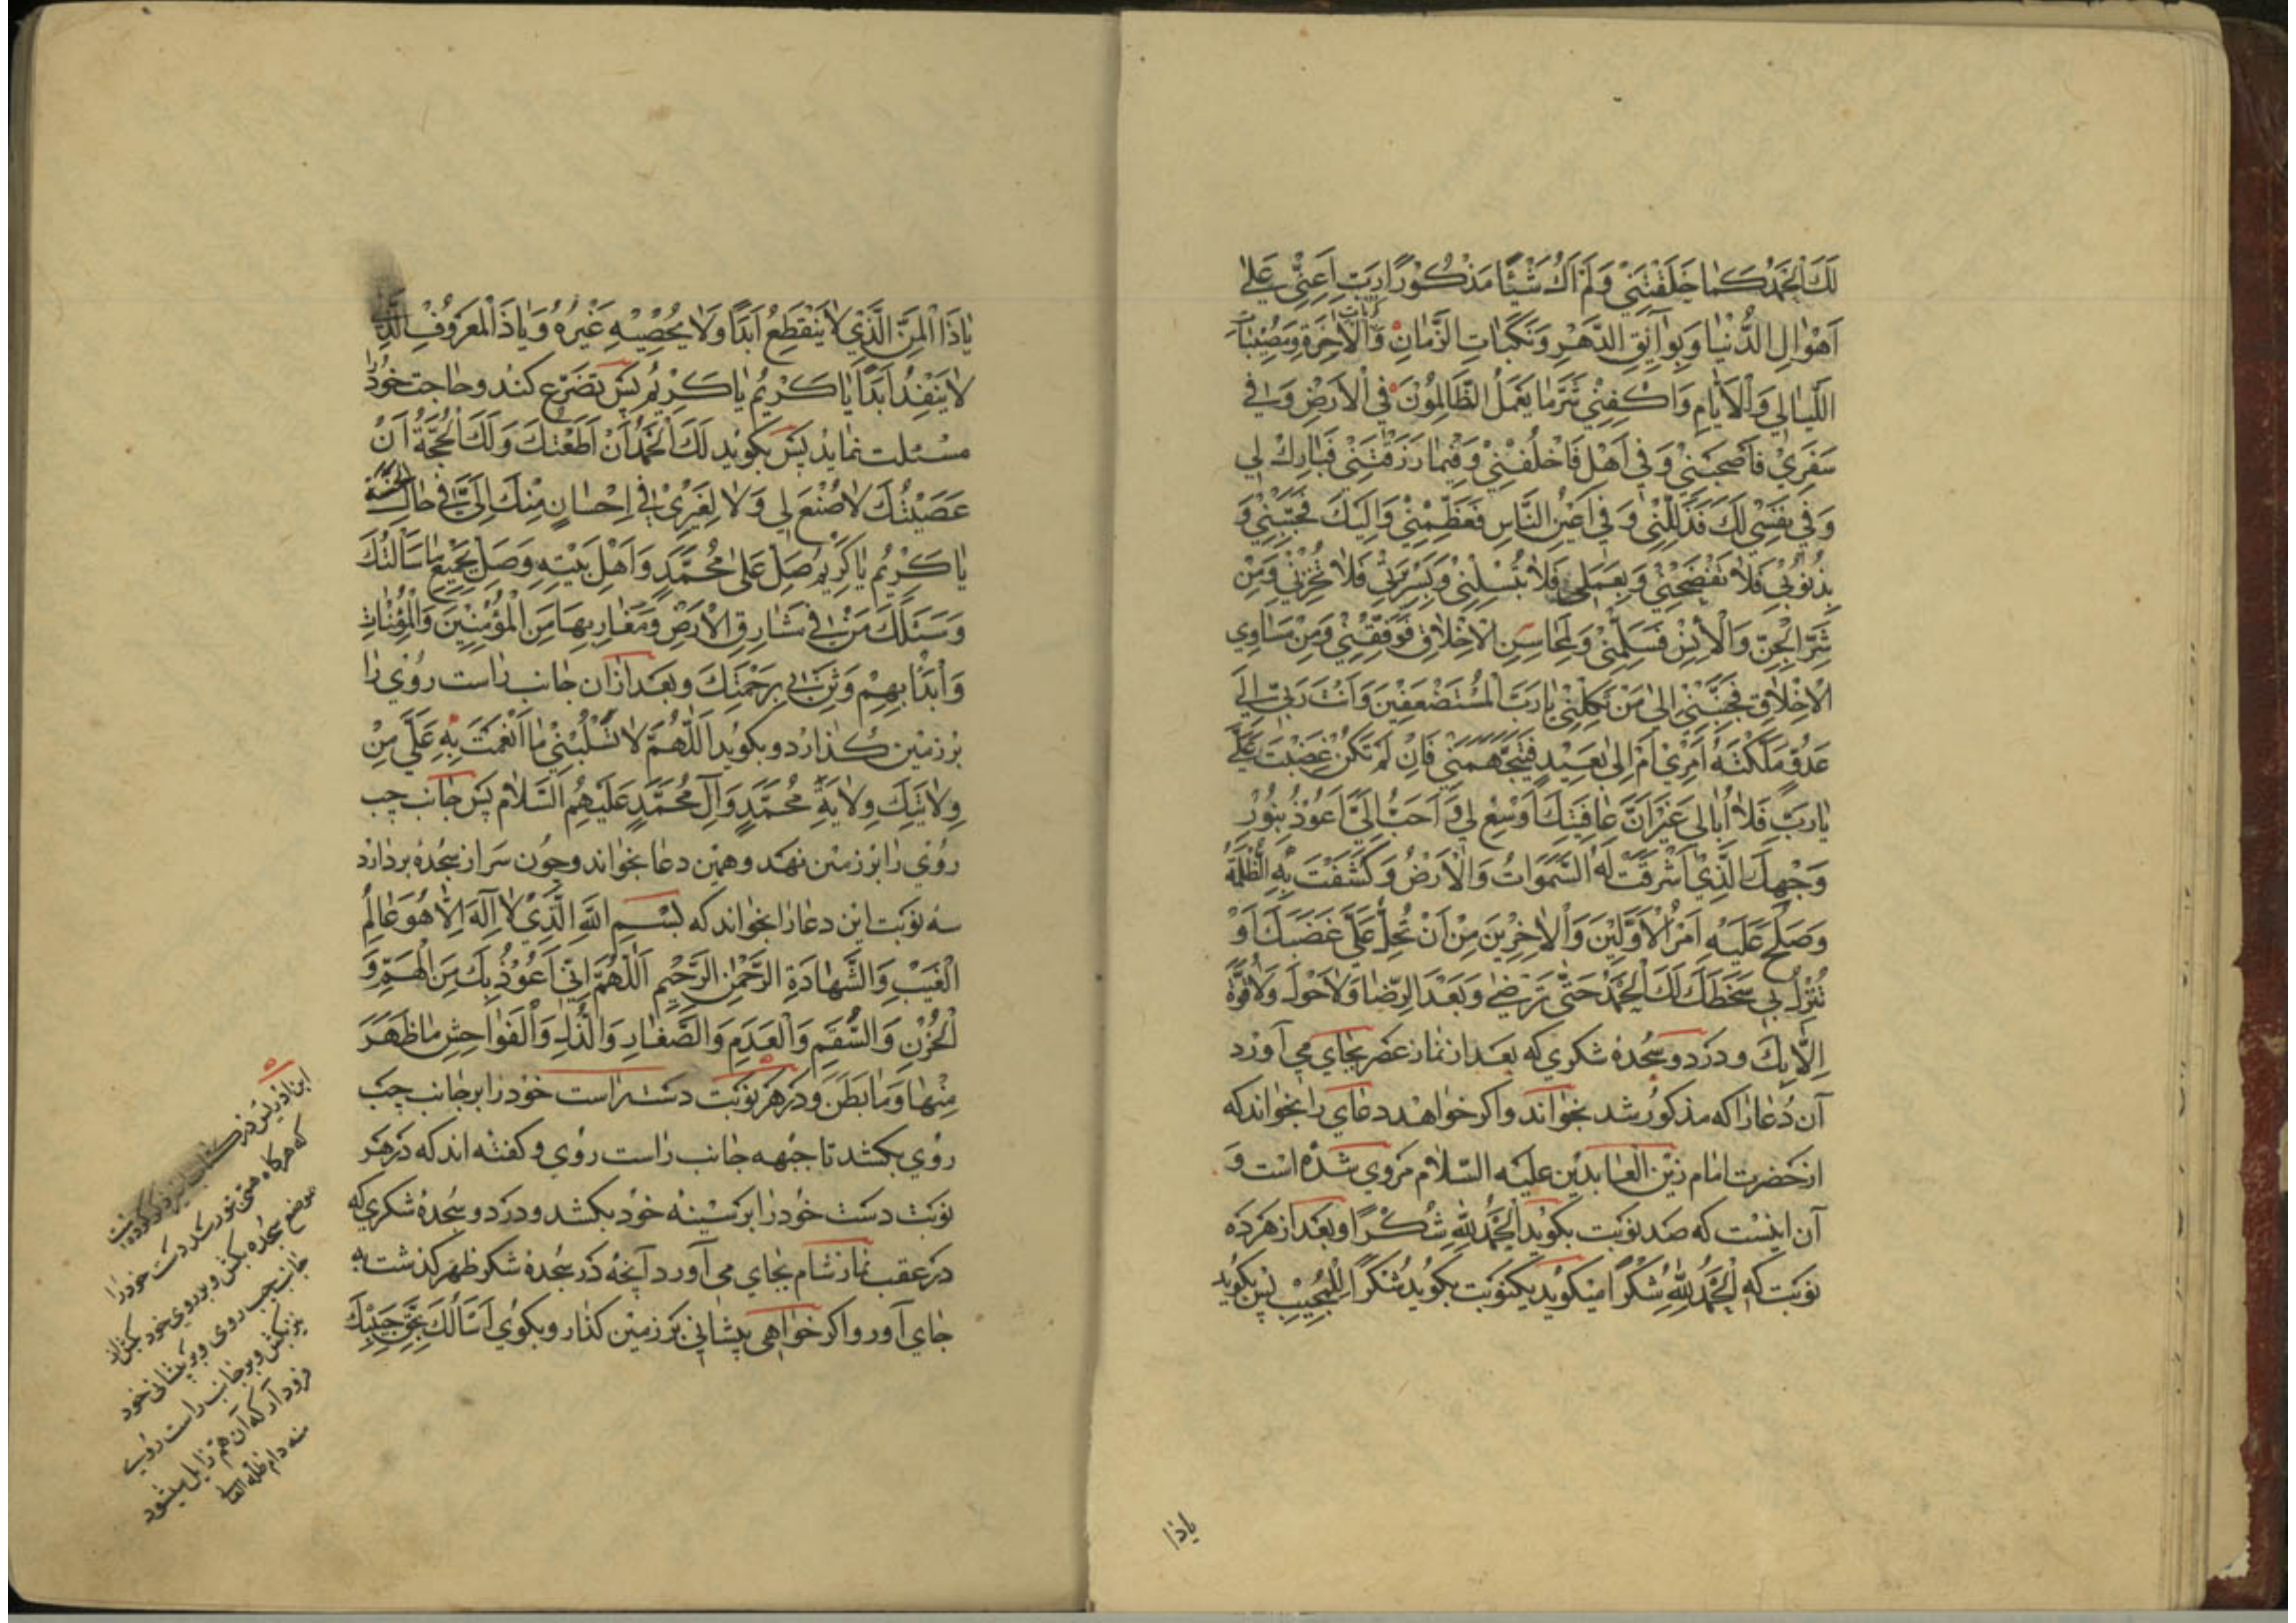 لَكَ الْحَمْدُ كَمَا خَلَقْتَنِي وَلَمْ اَكُ شَيْئًا مَذْكُورًا رَبِّ اَعِنِّي عَلٰى
اَهْوَالِ الدُّنْيَا وَبَوَائِقِ الدَّهْرِ وَنَكَبَاتِ الزَّمَانِ وَالْاٰخِرَةِ وَمُصِيبَاتِ
اللَّيَالِي وَالْاَيَّامِ وَاكْفِنِي شَرَّ مَا يَعْمَلُ الظَّالِمُونَ فِي الْاَرْضِ وَفِي
سَفَرِي فَاَصْحِبْنِي وَفِي اَهْلِي فَاخْلُفْنِي وَفِيمَا رَزَقْتَنِي فَبَارِكْ لِي
وَفِي نَفْسِي لَكَ فَذَلِّلْنِي وَفِي اَعْيُنِ النَّاسِ فَعَظِّمْنِي وَاِلَيْكَ فَحَبِّبْنِي وَ
بِذُنُوبِي فَلَا تَفْضَحْنِي وَبِعَمَلِي فَلَا تُبْسِلْنِي وَبِسَرِيرَتِي فَلَا تُخْزِنِي وَمِنْ
شَرِّ الْجِنِّ وَالْاِنْسِ فَسَلِّمْنِي وَلِمَحَاسِنِ الْاَخْلَاقِ فَوَفِّقْنِي وَمِنْ مَسَاوِي
الْاَخْلَاقِ فَجَنِّبْنِي اِلٰى مَنْ تَكِلُنِي يَا رَبَّ الْمُسْتَضْعَفِينَ وَاَنْتَ رَبِّي اِلٰى
عَدُوٍّ مَلَّكْتَهُ اَمْرِي اَمْ اِلٰى بَعِيدٍ فَيَتَجَهَّمَنِي فَاِنْ لَمْ تَكُنْ غَضِبْتَ عَلَيَّ
يَا رَبِّ فَلَا اُبَالِي غَيْرَ اَنَّ عَافِيَتَكَ اَوْسَعُ لِي وَاَحَبُّ اِلَيَّ اَعُوذُ بِنُورِ
وَجْهِكَ الَّذِي اَشْرَقَتْ لَهُ السَّمٰوَاتُ وَالْاَرْضُ وَكَشَفْتَ بِهِ الظُّلْمَةُ
وَصَلَحَ عَلَيْهِ اَمْرُ الْاَوَّلِينَ وَالْاٰخِرِينَ مِنْ اَنْ تُحِلَّ عَلَيَّ غَضَبَكَ اَوْ
تُنْزِلَ بِي سَخَطَكَ لَكَ الْحَمْدُ حَتّٰى تَرْضٰى وَبَعْدَ الرِّضَا وَلَا حَوْلَ وَلَا قُوَّةَ
اِلَّا بِكَ ودر دو سجدۀ شكري كه بعد از نماز عصر بجاي مي آورد
آن دعا را كه مذكور شد بخواند واكر خواهد دعاي را بخواند كه
از حضرت امام زين العابدين عليه السلام مروي شده است و
آن اينست كه صد نوبت بكويد الحمد لله شكرا وبعد از هر ده
نوبت كه الحمد لله شكرا ميكويد يكنوبت بكويد شكرا للمجيب پس بكويد
ياذا
يَا ذَا الْمَنِّ الَّذِي لَا يَنْقَطِعُ اَبَدًا وَلَا يُحْصِيهِ غَيْرُهُ وَيَا ذَا الْمَعْرُوفِ الَّذِي
لَا يَنْفَدُ اَبَدًا يَا كَرِيمُ يَا كَرِيمُ پس تضرع كند وحاجت خود را
مسئلت نمايد پس بكويد لَكَ الْحَمْدُ اَنْ اَطَعْتُكَ وَلَكَ الْحُجَّةُ اَنْ
عَصَيْتُكَ لَا صُنْعَ لِي وَلَا لِغَيْرِي فِي اِحْسَانٍ مِنْكَ اِلَيَّ فِي حَالِ الْحَسَنَةِ
يَا كَرِيمُ يَا كَرِيمُ صَلِّ عَلٰى مُحَمَّدٍ وَاَهْلِ بَيْتِهِ وَصَلِّ بِجَمِيعِ مَا سَاَلْتُكَ
وَسَئَلَكَ مَنْ فِي مَشَارِقِ الْاَرْضِ وَمَغَارِبِهَا مِنَ الْمُؤْمِنِينَ وَالْمُؤْمِنَاتِ
وَابْدَأْ بِهِمْ وَثَنِّ بِي بِرَحْمَتِكَ وبعد از ان جانب راست روي را
بر زمين كذارد وبكويد اَللّٰهُمَّ لَا تَسْلُبْنِي مَا اَنْعَمْتَ بِهِ عَلَيَّ مِنْ
وِلَايَتِكَ وِلَايَةِ مُحَمَّدٍ وَآلِ مُحَمَّدٍ عَلَيْهِمُ السَّلَام پس جانب چپ
روي را بر زمين نهد وهمين دعا بخواند وچون سر از سجده بردارد
سه نوبت اين دعا را بخواند كه بِسْمِ اللّٰهِ الَّذِي لَا اِلٰهَ اِلَّا هُوَ عَالِمُ
الْغَيْبِ وَالشَّهَادَةِ الرَّحْمٰنِ الرَّحِيمِ اَللّٰهُمَّ اِنِّي اَعُوذُ بِكَ مِنَ الْهَمِّ وَ
الْحُزْنِ وَالسُّقْمِ وَالْعَدَمِ وَالصَّغَارِ وَالذُّلِّ وَالْفَوَاحِشِ مَا ظَهَرَ
مِنْهَا وَمَا بَطَنَ ودر هر نوبت دست راست خود را بر جانب چپ
روي بكشد تا جبهه جانب راست روي وكفته اند كه در هر
نوبت دست خود را بر سينه خود بكشد ودر دو سجدۀ شكري كه
در عقب نماز شام بجاي مي آورد آنچه در سجدۀ شكر ظهر كذشت به
جاي آورد واكر خواهي پيشاني بر زمين كذار وبكوي اَسْاَلُكَ بِحَقِّ حَبِيبِكَ
ابن ادريس در كتاب سراير ذكر كرده است
كه هركاه همّي بتو رسد دست خود را
موضع سجده بكش وبر روي خود بكش از
جانب چپ روي وبر پيشاني خود
نيز بكش وبر جانب راست روي
فرود آر كه آن هم زايل ميشود
منه دام ظله العالي